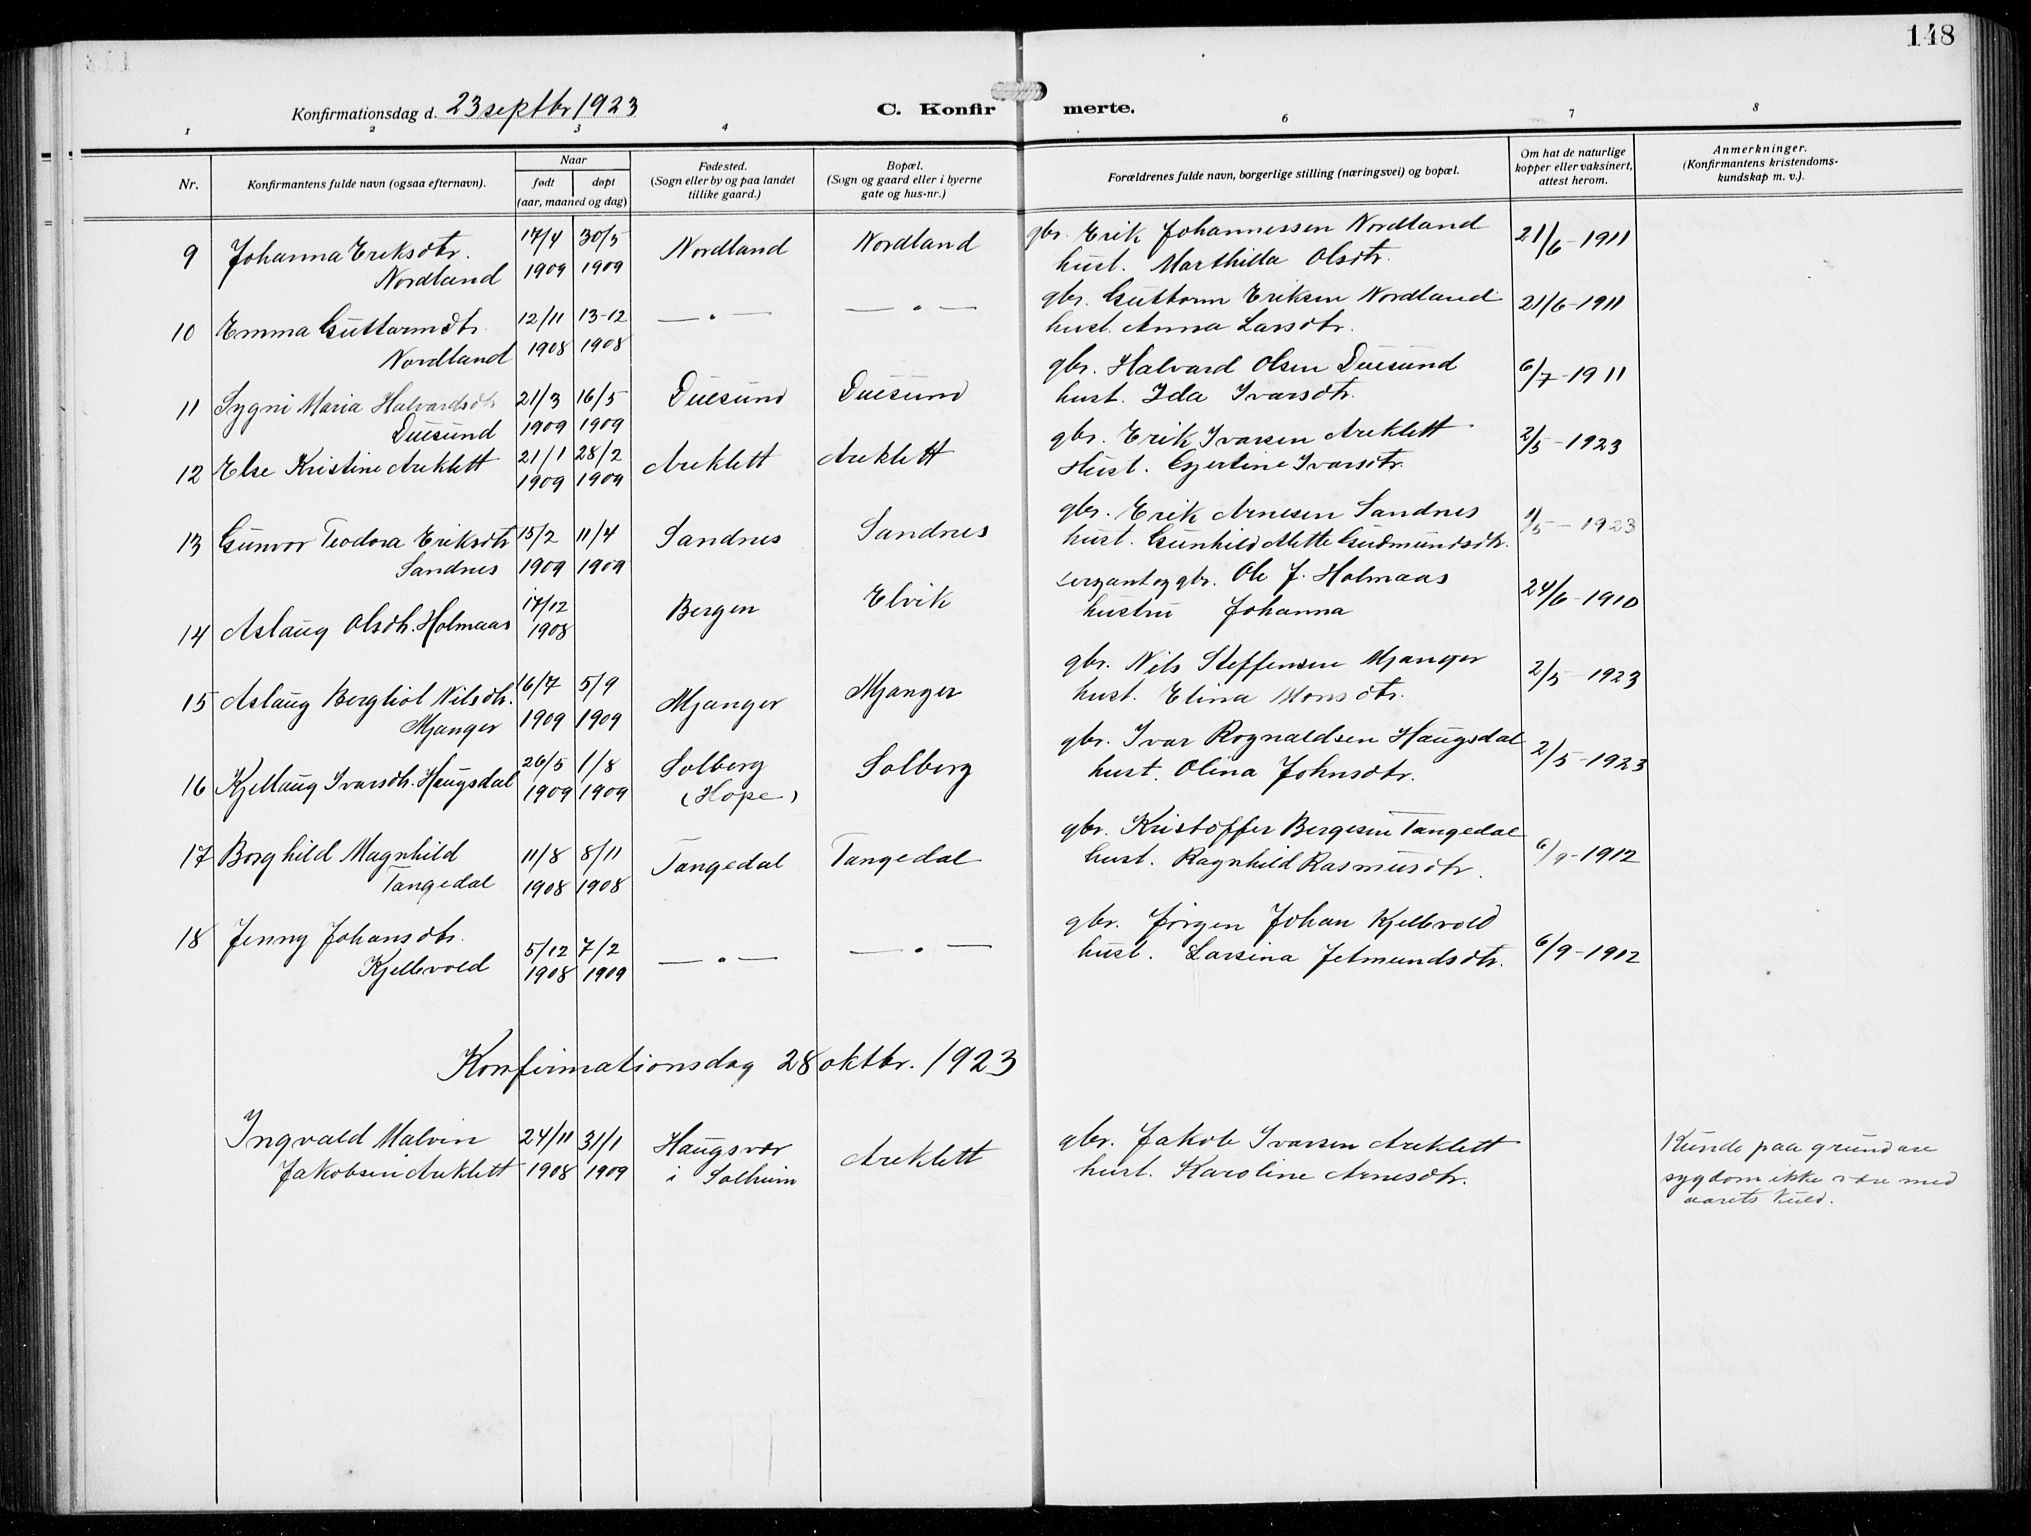 148
Konfirmationsdag d. 23 septbr 1923
C. Konfirmerte.
1 2 3 4 6 7 8
Nr.
Konfirmantens fulde navn (ogsaa efternavn).
Naar
født døpt
(aar, maaned og dag)
Fødested.
(Sogn eller by og paa landet
tillike gaard.)
Bopæl.
(Sogn og gaard eller i byerne
gate og hus-nr.)
Forældrenes fulde navn, borgerlige stilling (næringsvei) og bopæl.
Om hat de naturlige
kopper eller vaksinert,
attest herom.
Anmerkninger.
(Konfirmantens kristendoms-
kundskap m. v.).
9 Johanna Eriksdtr. 17/4 30/5 Nordland Nordland gbr. Erik Johannessen Nordland 21/6-1911
Nordland 1909 1909 hust. Marthilda Olsdtr.
10 Emma Guttormdtr. 12/11 13-12 — " — — " — gbr. Guttorm Eriksen Nordland 21/6-1911
Nordland 1908 1908 hust. Anna Larsdtr.
11 Sygni Maria Halvardsdtr 21/3 16/5 Duesund Duesund gbr. Halvard Olsen Duesund 6/7-1911
Duesund 1909 1909 hust. Ida Ivarsdtr.
12 Else Kristine Areklett 21/1 28/2 Areklett Areklett gbr. Erik Ivarsen Areklett 2/5-1923
1909 1909 Hust. Gjertine Ivarsdtr.
13 Gunvor Teodora Eriksdtr 15/2 11/4 Sandnes Sandnes gbr. Erik Arnesen Sandnes /5-1923
Sandnes 1909 1909 hust. Gunhild Mette Gudmundsdtr.
14 Aslaug Olsdtr. Holmaas 17/12 Bergen Elvik sersjant og gbr. Ole J. Holmaas 24/6-1910
1908 hustru Johanna
15 Aslaug Bergliot Nilsdtr. 16/7 5/9 Mjanger Mjanger gbr. Nils Steffensen Mjanger 2/5-1923
Mjanger 1909 1909 hust. Elina Monsdtr.
16 Kjellaug Ivarsdtr. Haugsdal 26/5 1/8 Solberg Solberg gbr. Ivar Rognaldsen Haugsdal 2/5-1923
1909 1909 (Hope) hust. Olina Johnsdtr.
17 Borghild Magnhild 11/8 8/11 Tangedal Tangedal gbr. Kristoffer Bergesen Tangedal 6/9-1912
Tangedal 1908 1908 hust. Ragnhild Rasmusdtr.
18 Jenny Johansdtr. 5/12 7/2 — " — — " — gbr. Jørgen Johan Kjellevold 6/9-1912
Kjellevold 1908 1909 hust. Larsina Jetmundsdtr.
Konfirmationsdag 28 oktbr. 1923
Ingvald Malvin 24/11 31/1 Haugsvær Areklett gbr. Jakob Ivarsen Areklett Kunde paa grund av
Jakobsen Areklett 1908 1909 i Solheim hust. Karoline Arnesdtr. sygdom ikke være med
aarets kuld.